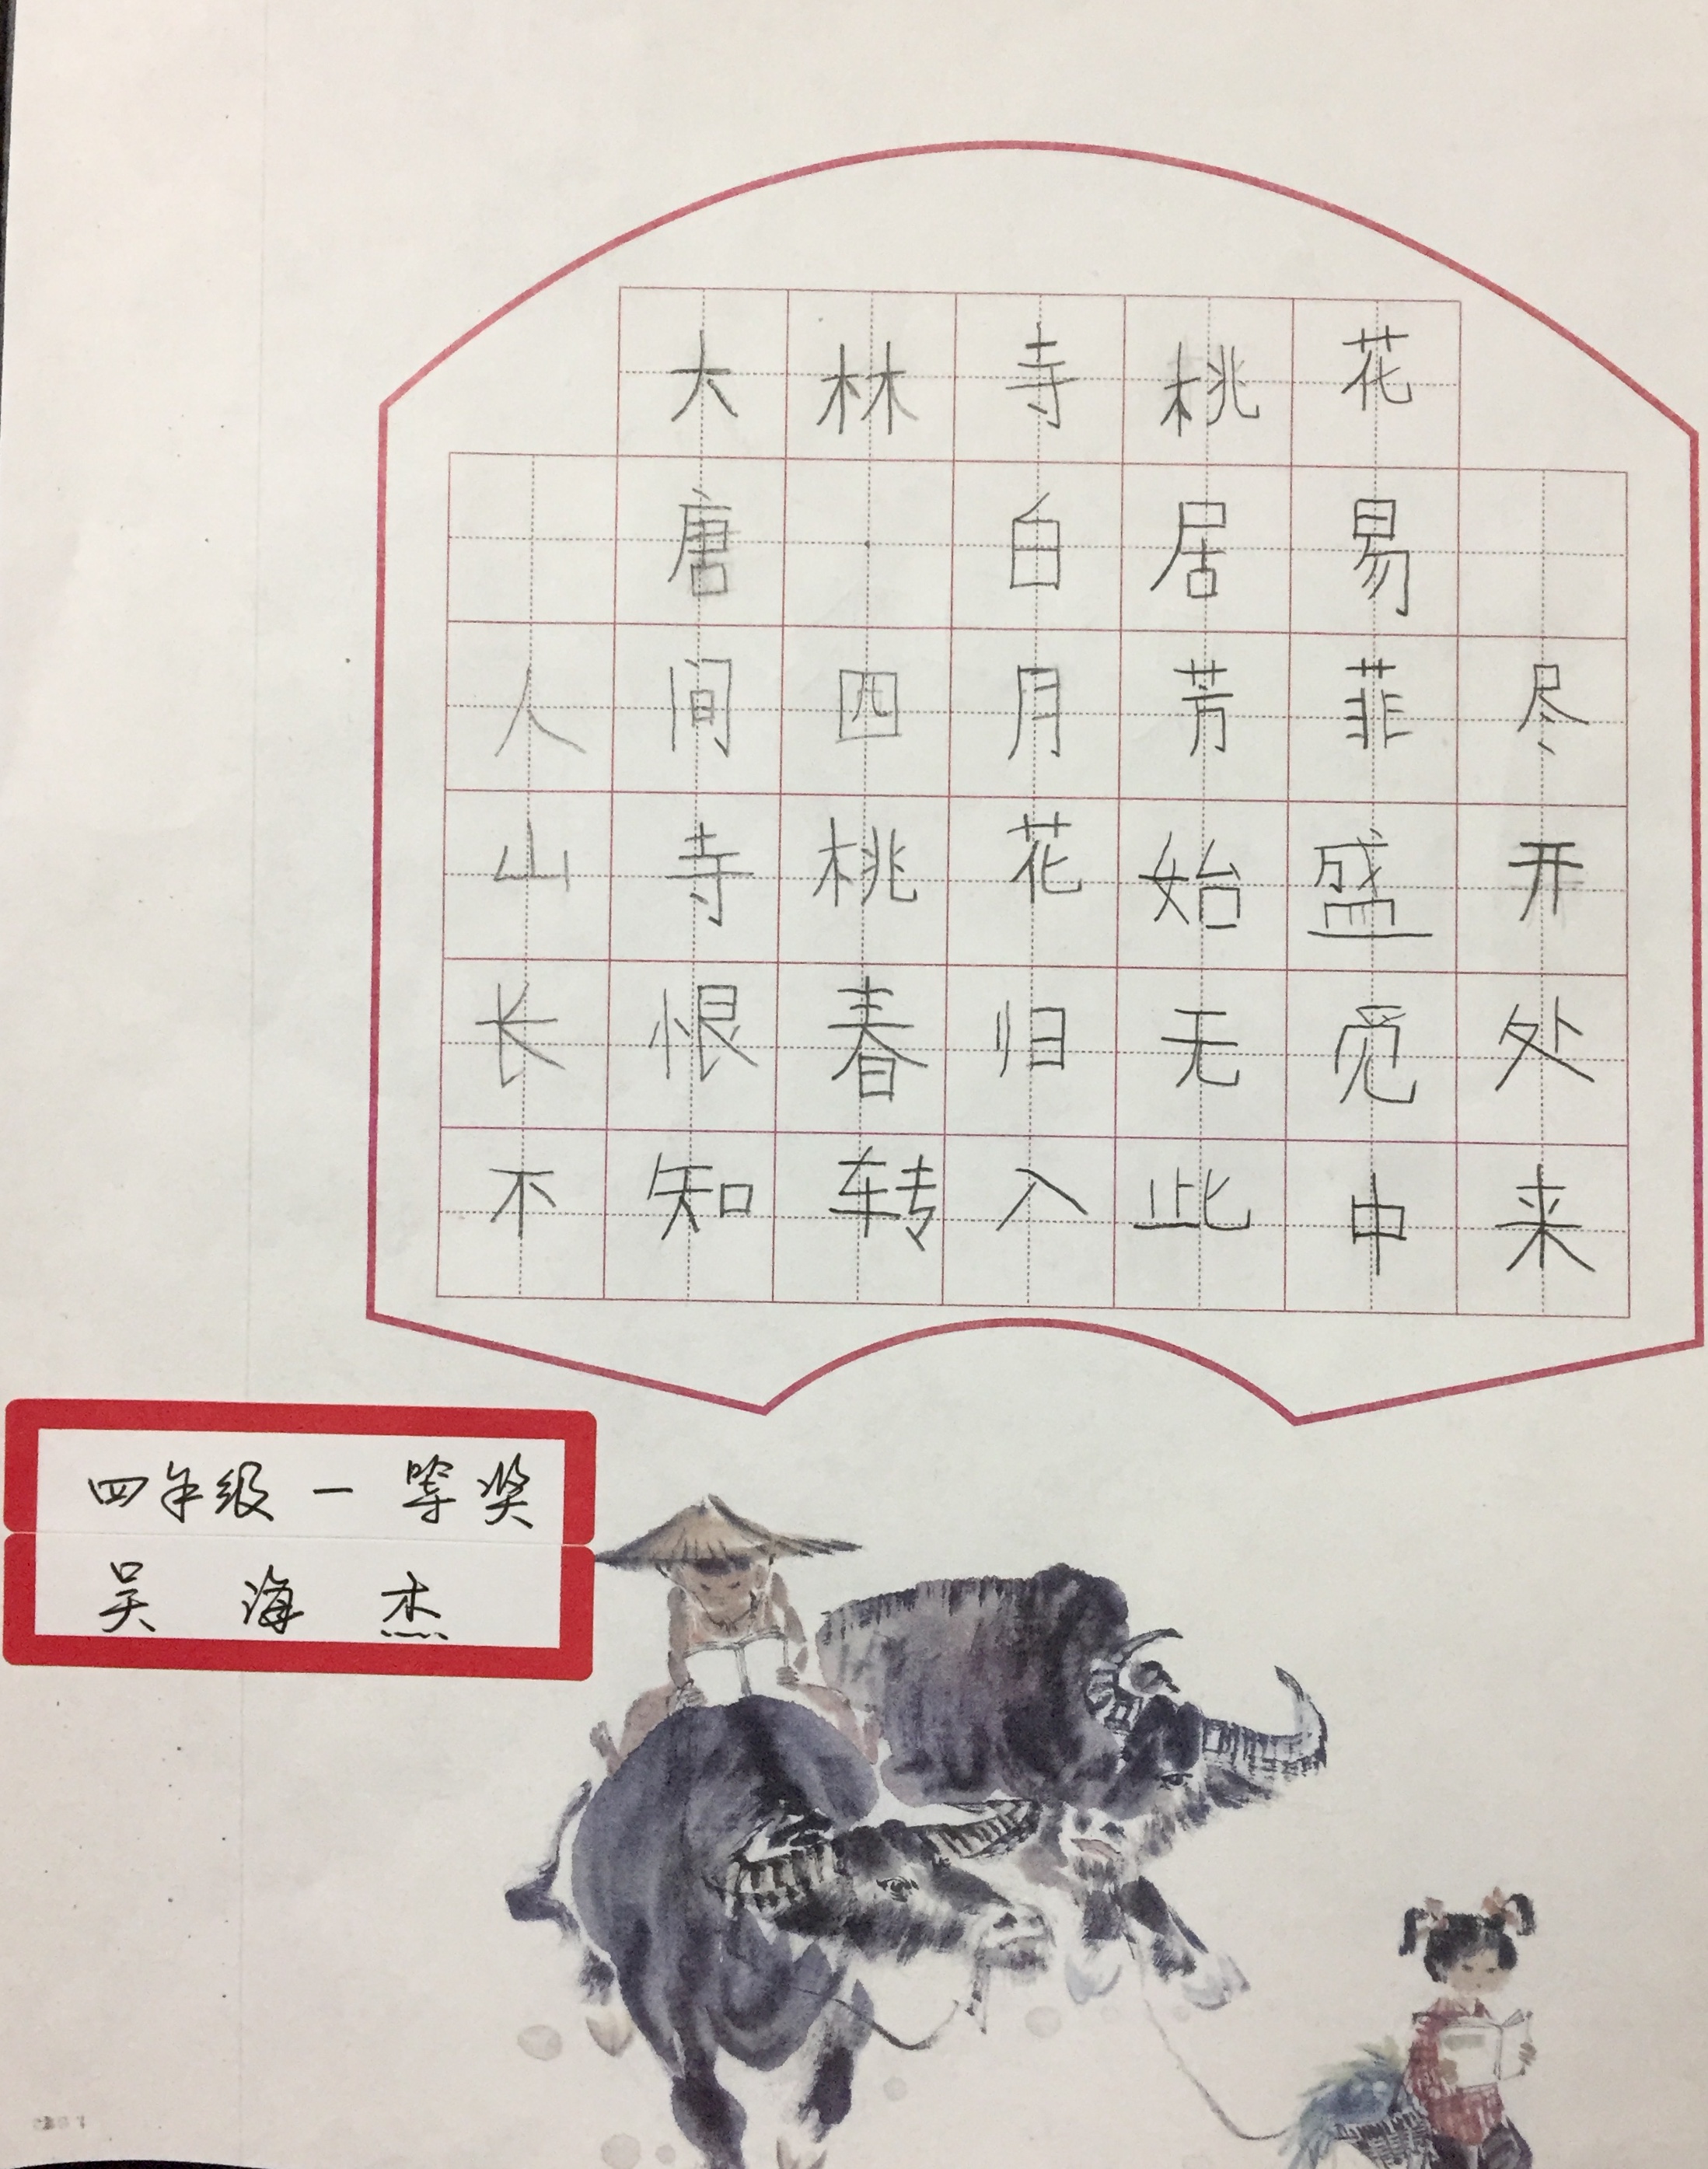 大林寺桃花
唐 白居易
人间四月芳菲尽
山寺桃花始盛开
长恨春归无觅处
不知转入此中来
四年级一等奖
吴海杰